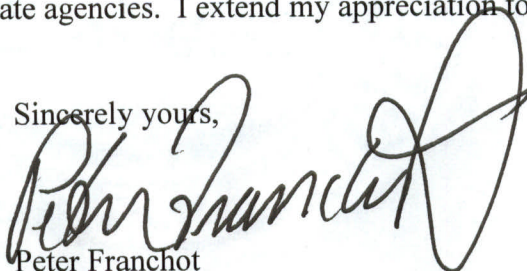 ate agencies.  I extend my appreciation to
Sincerely yours,
Peter Franchot
Peter Franchot